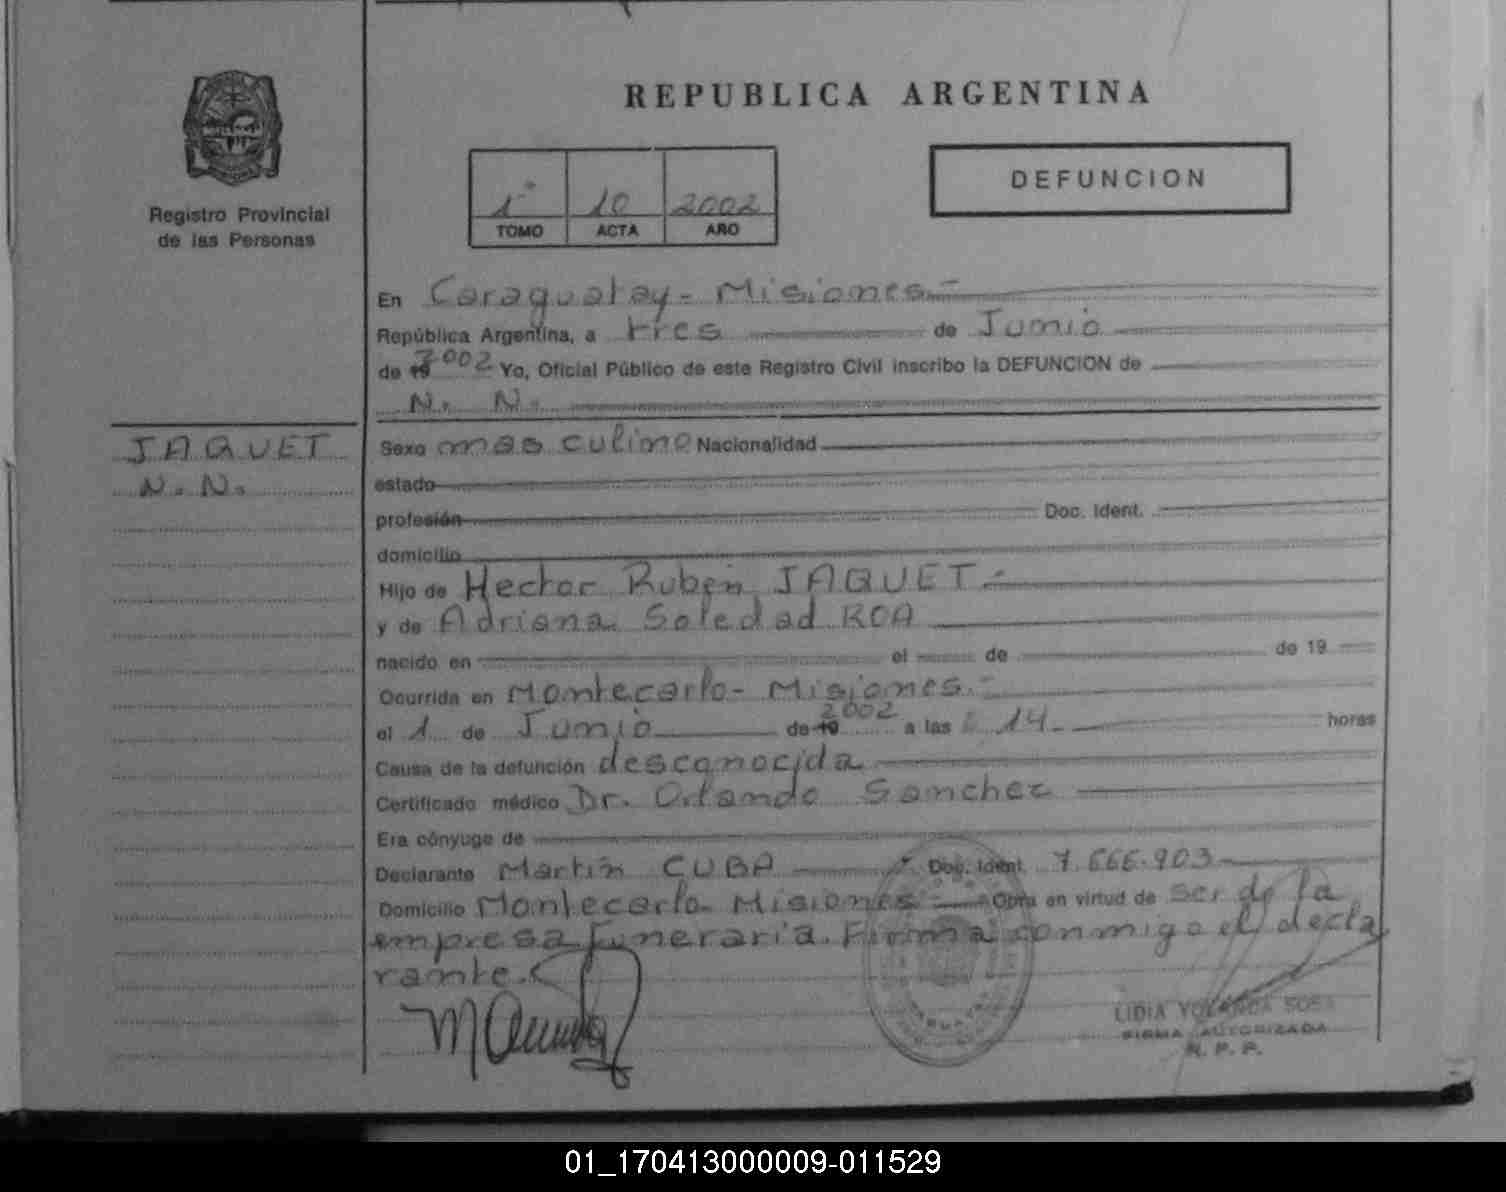 REPUBLICA ARGENTINA
Registro Provincial
de las Personas
1° 10 2002
TOMO ACTA AÑO
DEFUNCION
En Caraguatay - Misiones.-
República Argentina, a tres de Junio
de 19 2002 Yo, Oficial Público de este Registro Civil inscribo la DEFUNCION de
N. N.
JAQUET
N. N.
Sexo masculino Nacionalidad
estado
profesión Doc. Ident.
domicilio
Hijo de Hector Ruben JAQUET.-
y de Adriana Soledad ROA
nacido en el de de 19
Ocurrida en Montecarlo - Misiones.-
el 1 de Junio de 19 2002 a las 14.- horas
Causa de la defunción desconocida
Certificado médico Dr. Orlando Sanchez
Era cónyuge de
Declarante Martín CUBA Doc. Ident. 7.666.903
Domicilio Montecarlo - Misiones - Obra en virtud de ser de la
empresa funeraria. Firma conmigo el decla
rante.
LIDIA YOLANDA SOSA
FIRMA AUTORIZADA
R. P. P.
01_170413000009-011529